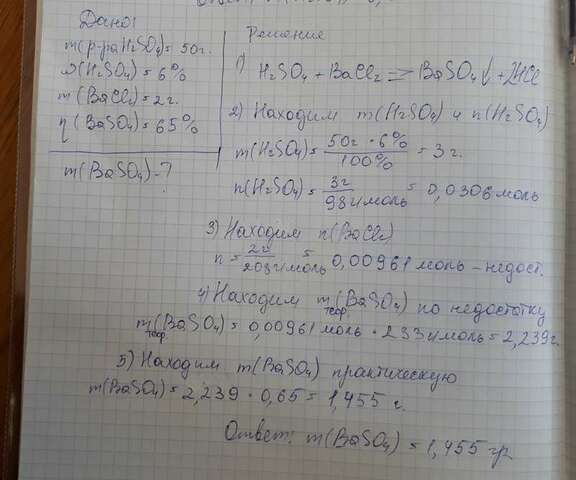 Дано:
m(р-раH₂SO₄)=50г.
ω(H₂SO₄)=6%
m(BaCl₂)=2г.
η(BaSO₄)=65%
m(BaSO₄)-?
Решение
1) H₂SO₄+BaCl₂=>BaSO₄↓+2HCl
2) Находим m(H₂SO₄) и n(H₂SO₄)
m(H₂SO₄)=50г·6%/100%=3г.
n(H₂SO₄)=3г/98г/моль=0,0306моль
3) Находим n(BaCl₂)
n=2г/208г/моль=0,00961моль-недост.
4) Находим mтеор(BaSO₄) по недостатку
mтеор(BaSO₄)=0,00961моль·233г/моль=2,239г.
5) Находим m(BaSO₄) практическую
m(BaSO₄)=2,239·0,65=1,455г.
Ответ: m(BaSO₄)=1,455гр